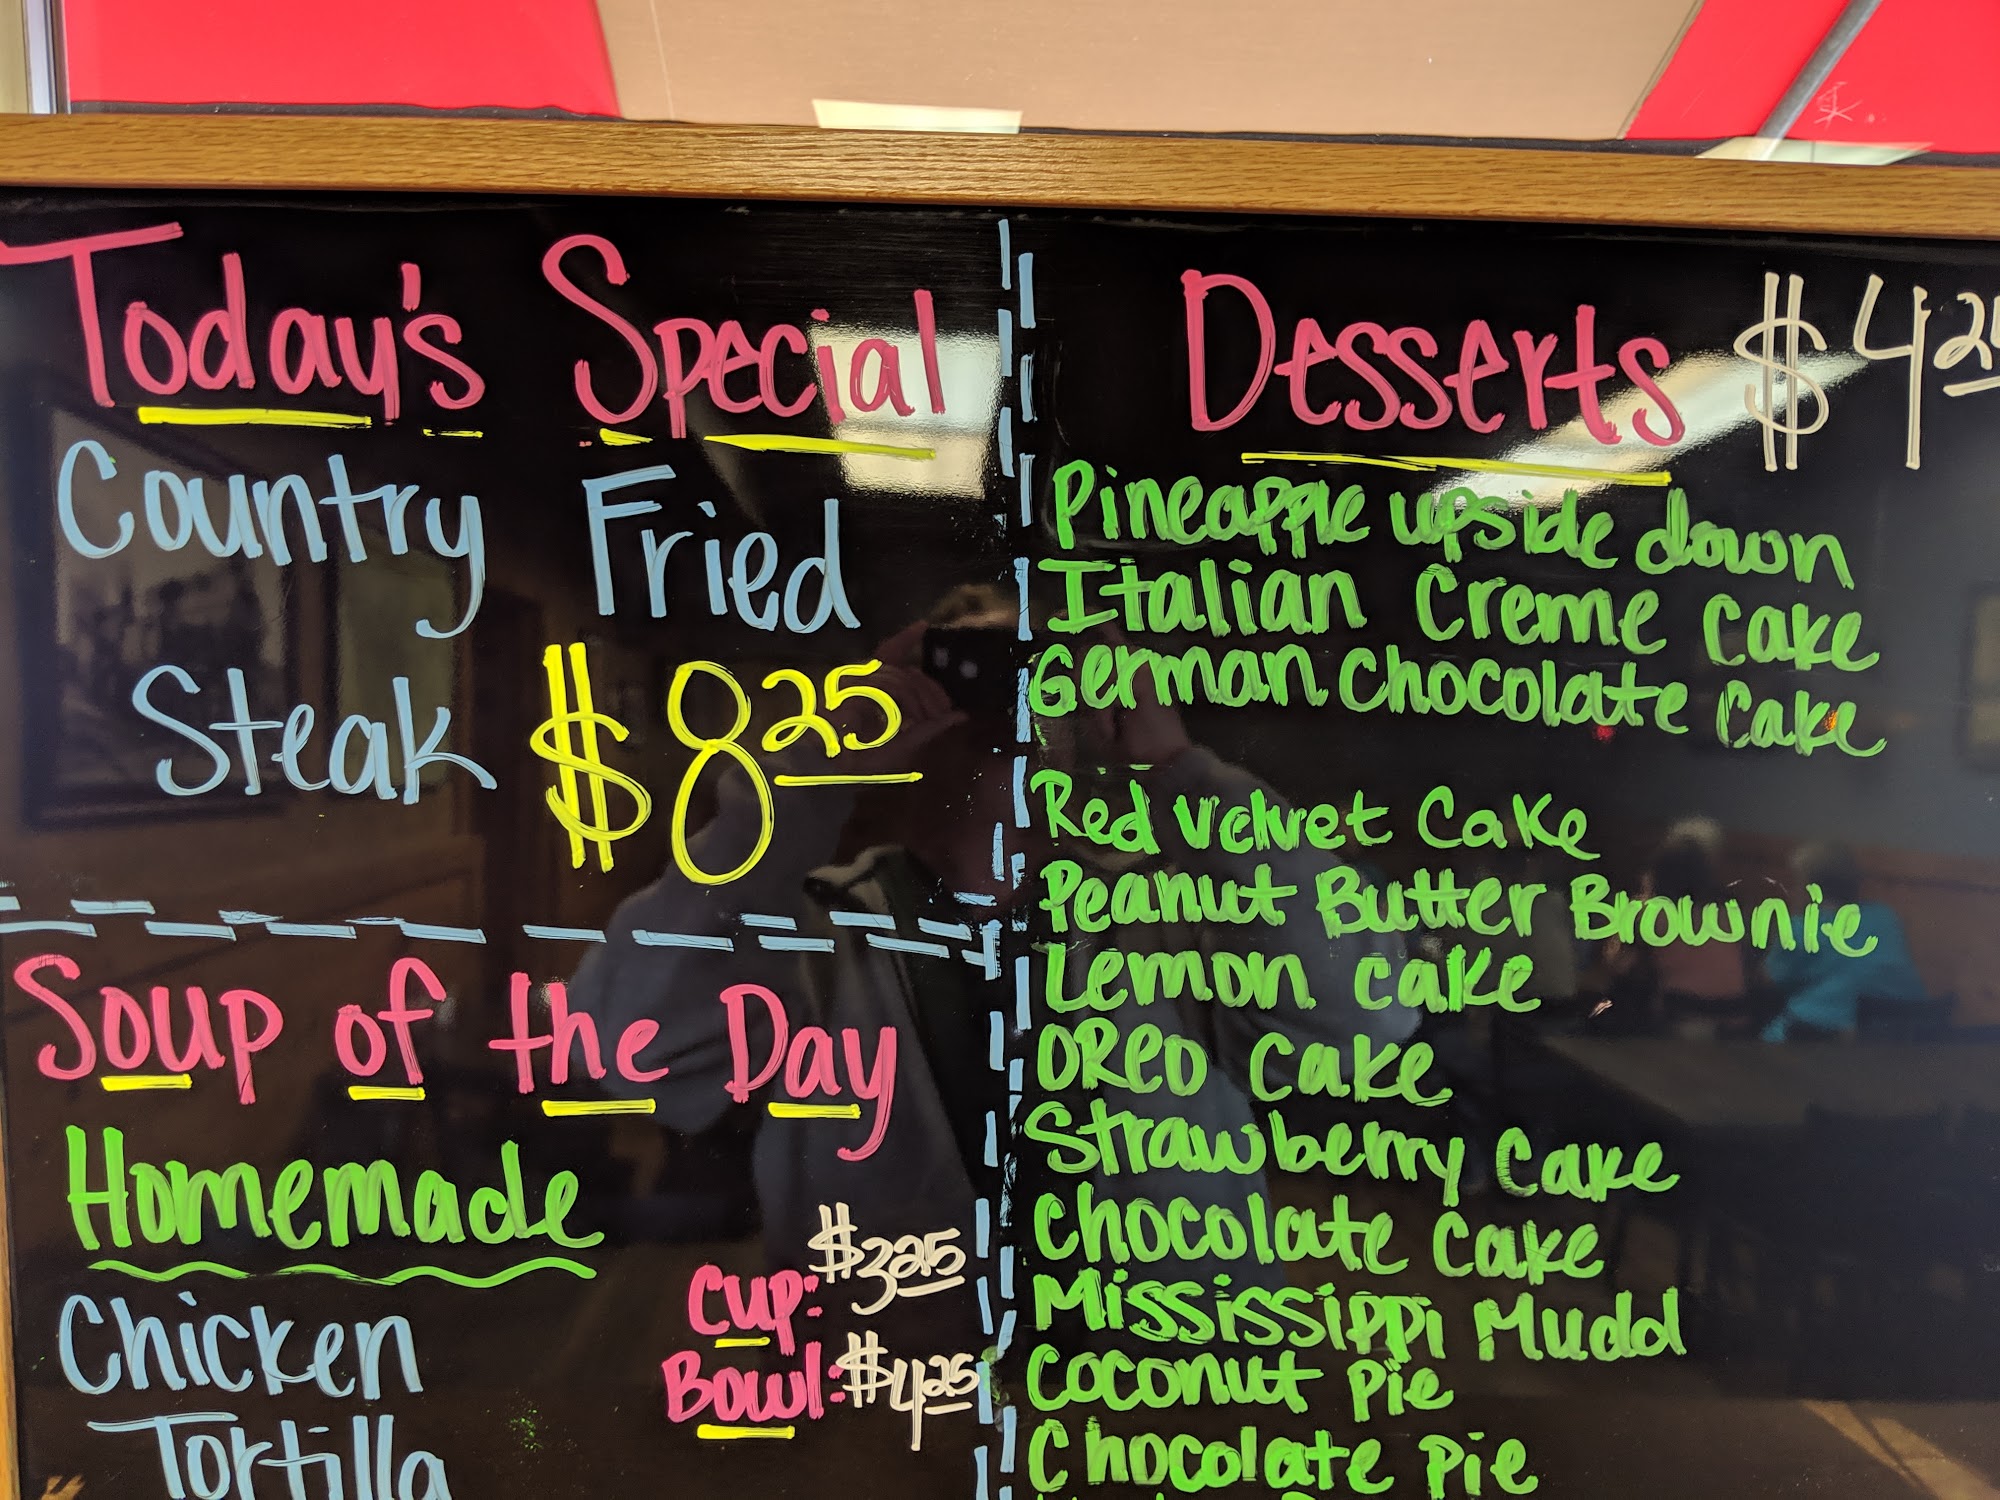 Today's Special
Country Fried
Steak $8.25
Soup of the Day
Homemade
Chicken
Tortilla
Cup: $3.25
Bowl: $4.25
Desserts $4.25
Pineapple upside down
Italian Creme Cake
German Chocolate Cake
Red Velvet Cake
Peanut Butter Brownie
Lemon Cake
OREO Cake
Strawberry Cake
Chocolate Cake
Mississippi Mudd
Coconut Pie
Chocolate Pie